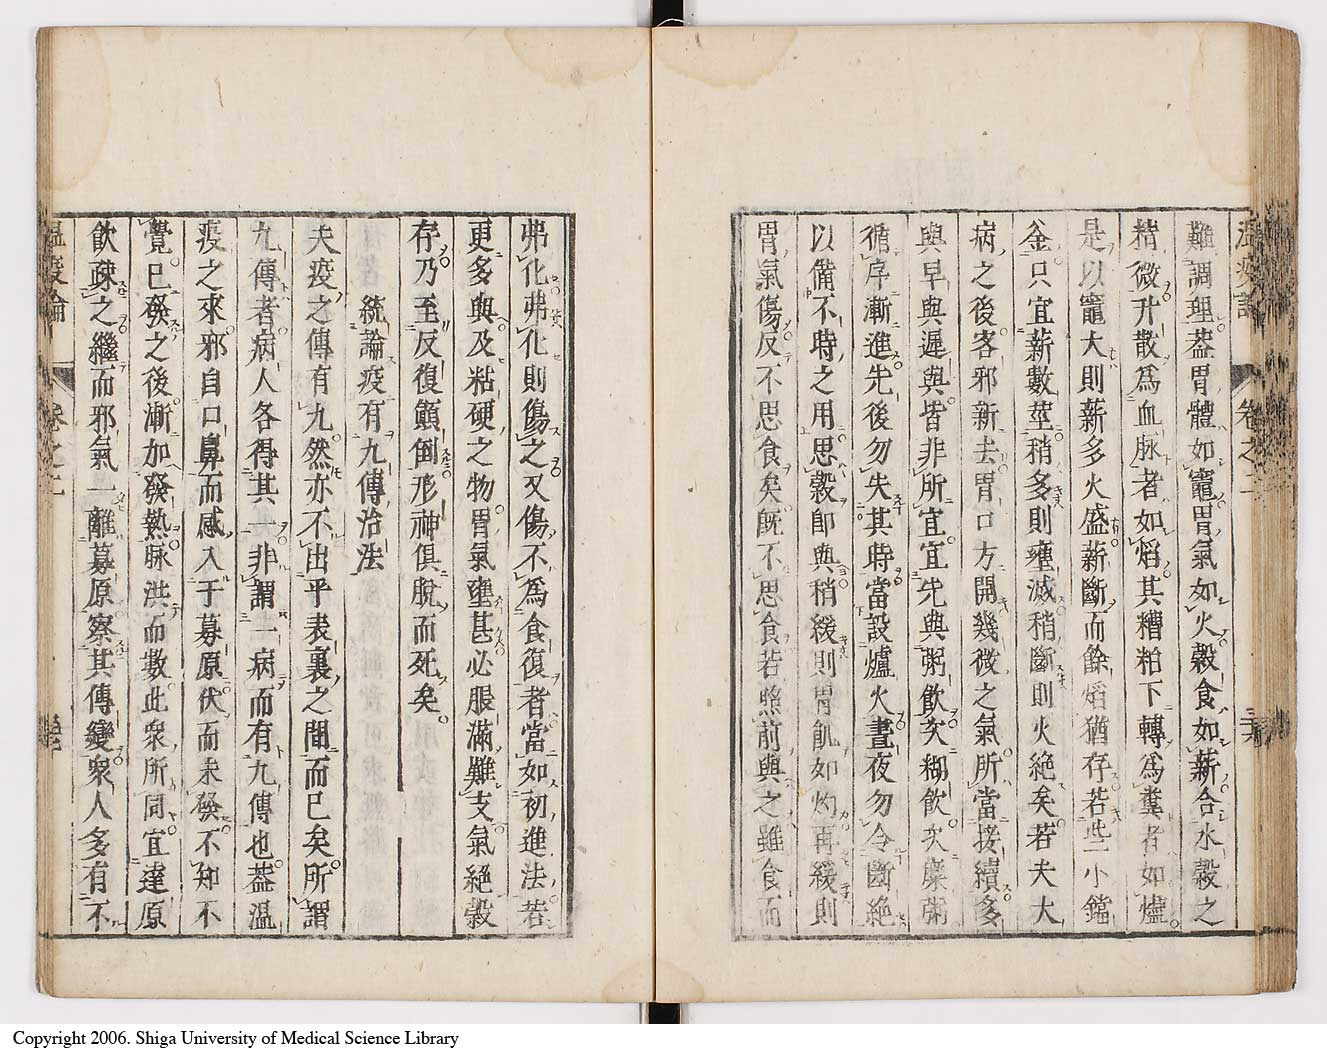 難調理蓋胃體如竈胃氣如火穀食如薪合水穀之
精微升散爲血脉者如焰其糟粕下轉爲糞者如燼
是以竈大則薪多火盛薪斷而餘焰猶存若些小鐺
釜只宜薪數莖稍多則壅滅稍斷則火絶矣若夫大
病之後客邪新去胃口方開幾微之氣所當接續多
與早與遲與皆非所宜宜先與粥飲次糊飲次糜粥
循序漸進先後勿失其時當設爐火晝夜勿令斷絶
以備不時之用思穀即與稍緩則胃飢如灼再緩則
胃氣傷反不思食矣既不思食若照前與之雖食而
弗化弗化則傷之又傷不爲食復者當如初進法若
更多與及粘硬之物胃氣壅甚必脹滿難支氣絶穀
存乃至反復顛倒形神俱脫而死矣
統論疫有九傳治法
夫疫之傳有九然亦不出乎表裏之間而已矣所謂
九傳者病人各得其一非謂一病而有九傳也蓋溫
疫之來邪自口鼻而感入于募原伏而未發不知不
覺已發之後漸加發熱脉洪而數此衆所同宜達原
飲疎之繼而邪氣一離募原察其傳變衆人多有不
溫疫論 卷之二
Copyright 2006. Shiga University of Medical Science Library